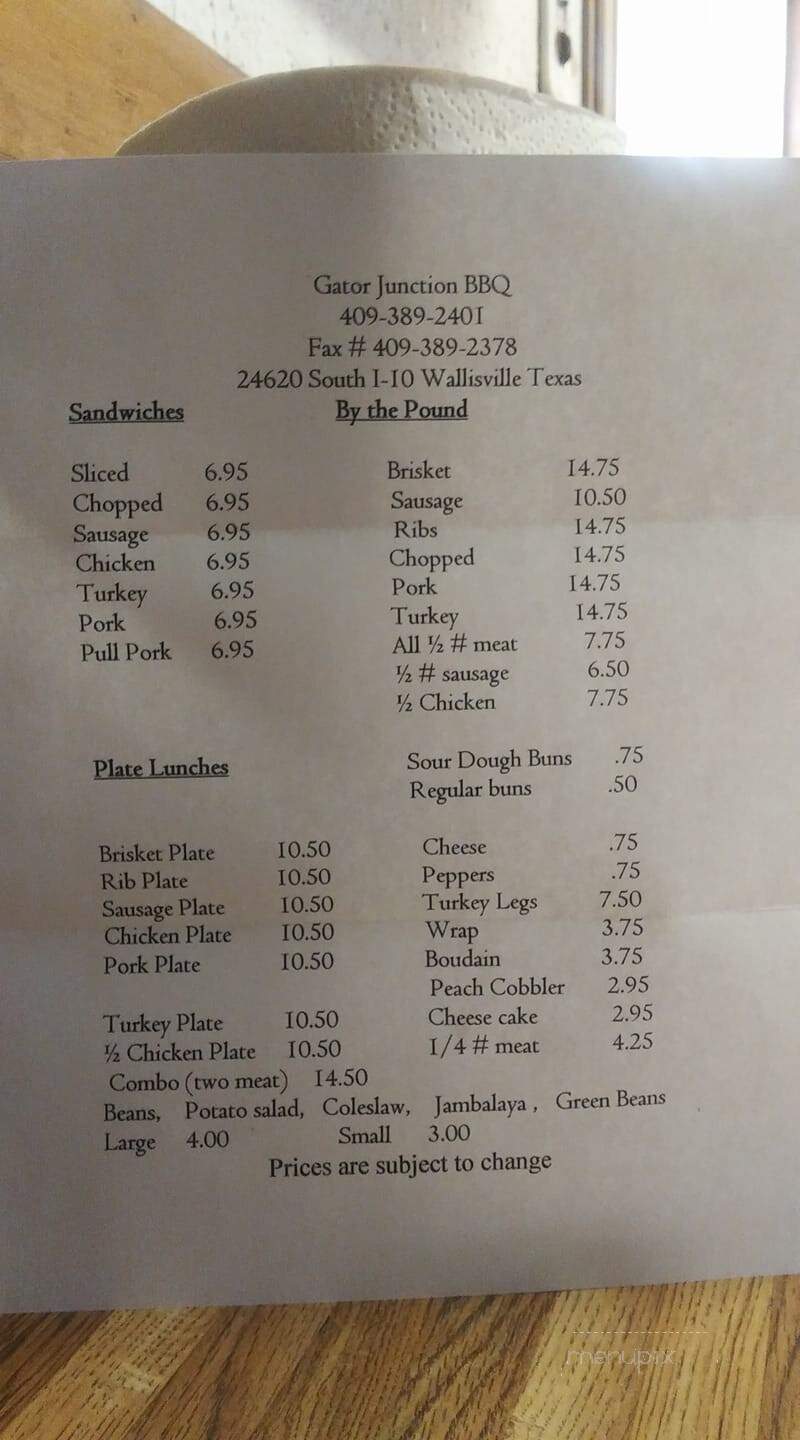 Gator Junction BBQ
409-389-2401
Fax # 409-389-2378
24620 South I-10 Wallisville Texas
Sandwiches By the Pound
Sliced 6.95 Brisket 14.75
Chopped 6.95 Sausage 10.50
Sausage 6.95 Ribs 14.75
Chicken 6.95 Chopped 14.75
Turkey 6.95 Pork 14.75
Pork 6.95 Turkey 14.75
Pull Pork 6.95 All ½ # meat 7.75
½ # sausage 6.50
½ Chicken 7.75
Plate Lunches Sour Dough Buns .75
Regular buns .50
Brisket Plate 10.50 Cheese .75
Rib Plate 10.50 Peppers .75
Sausage Plate 10.50 Turkey Legs 7.50
Chicken Plate 10.50 Wrap 3.75
Pork Plate 10.50 Boudain 3.75
Peach Cobbler 2.95
Turkey Plate 10.50 Cheese cake 2.95
½ Chicken Plate 10.50 1/4 # meat 4.25
Combo (two meat) 14.50
Beans, Potato salad, Coleslaw, Jambalaya , Green Beans
Large 4.00 Small 3.00
Prices are subject to change
menupix